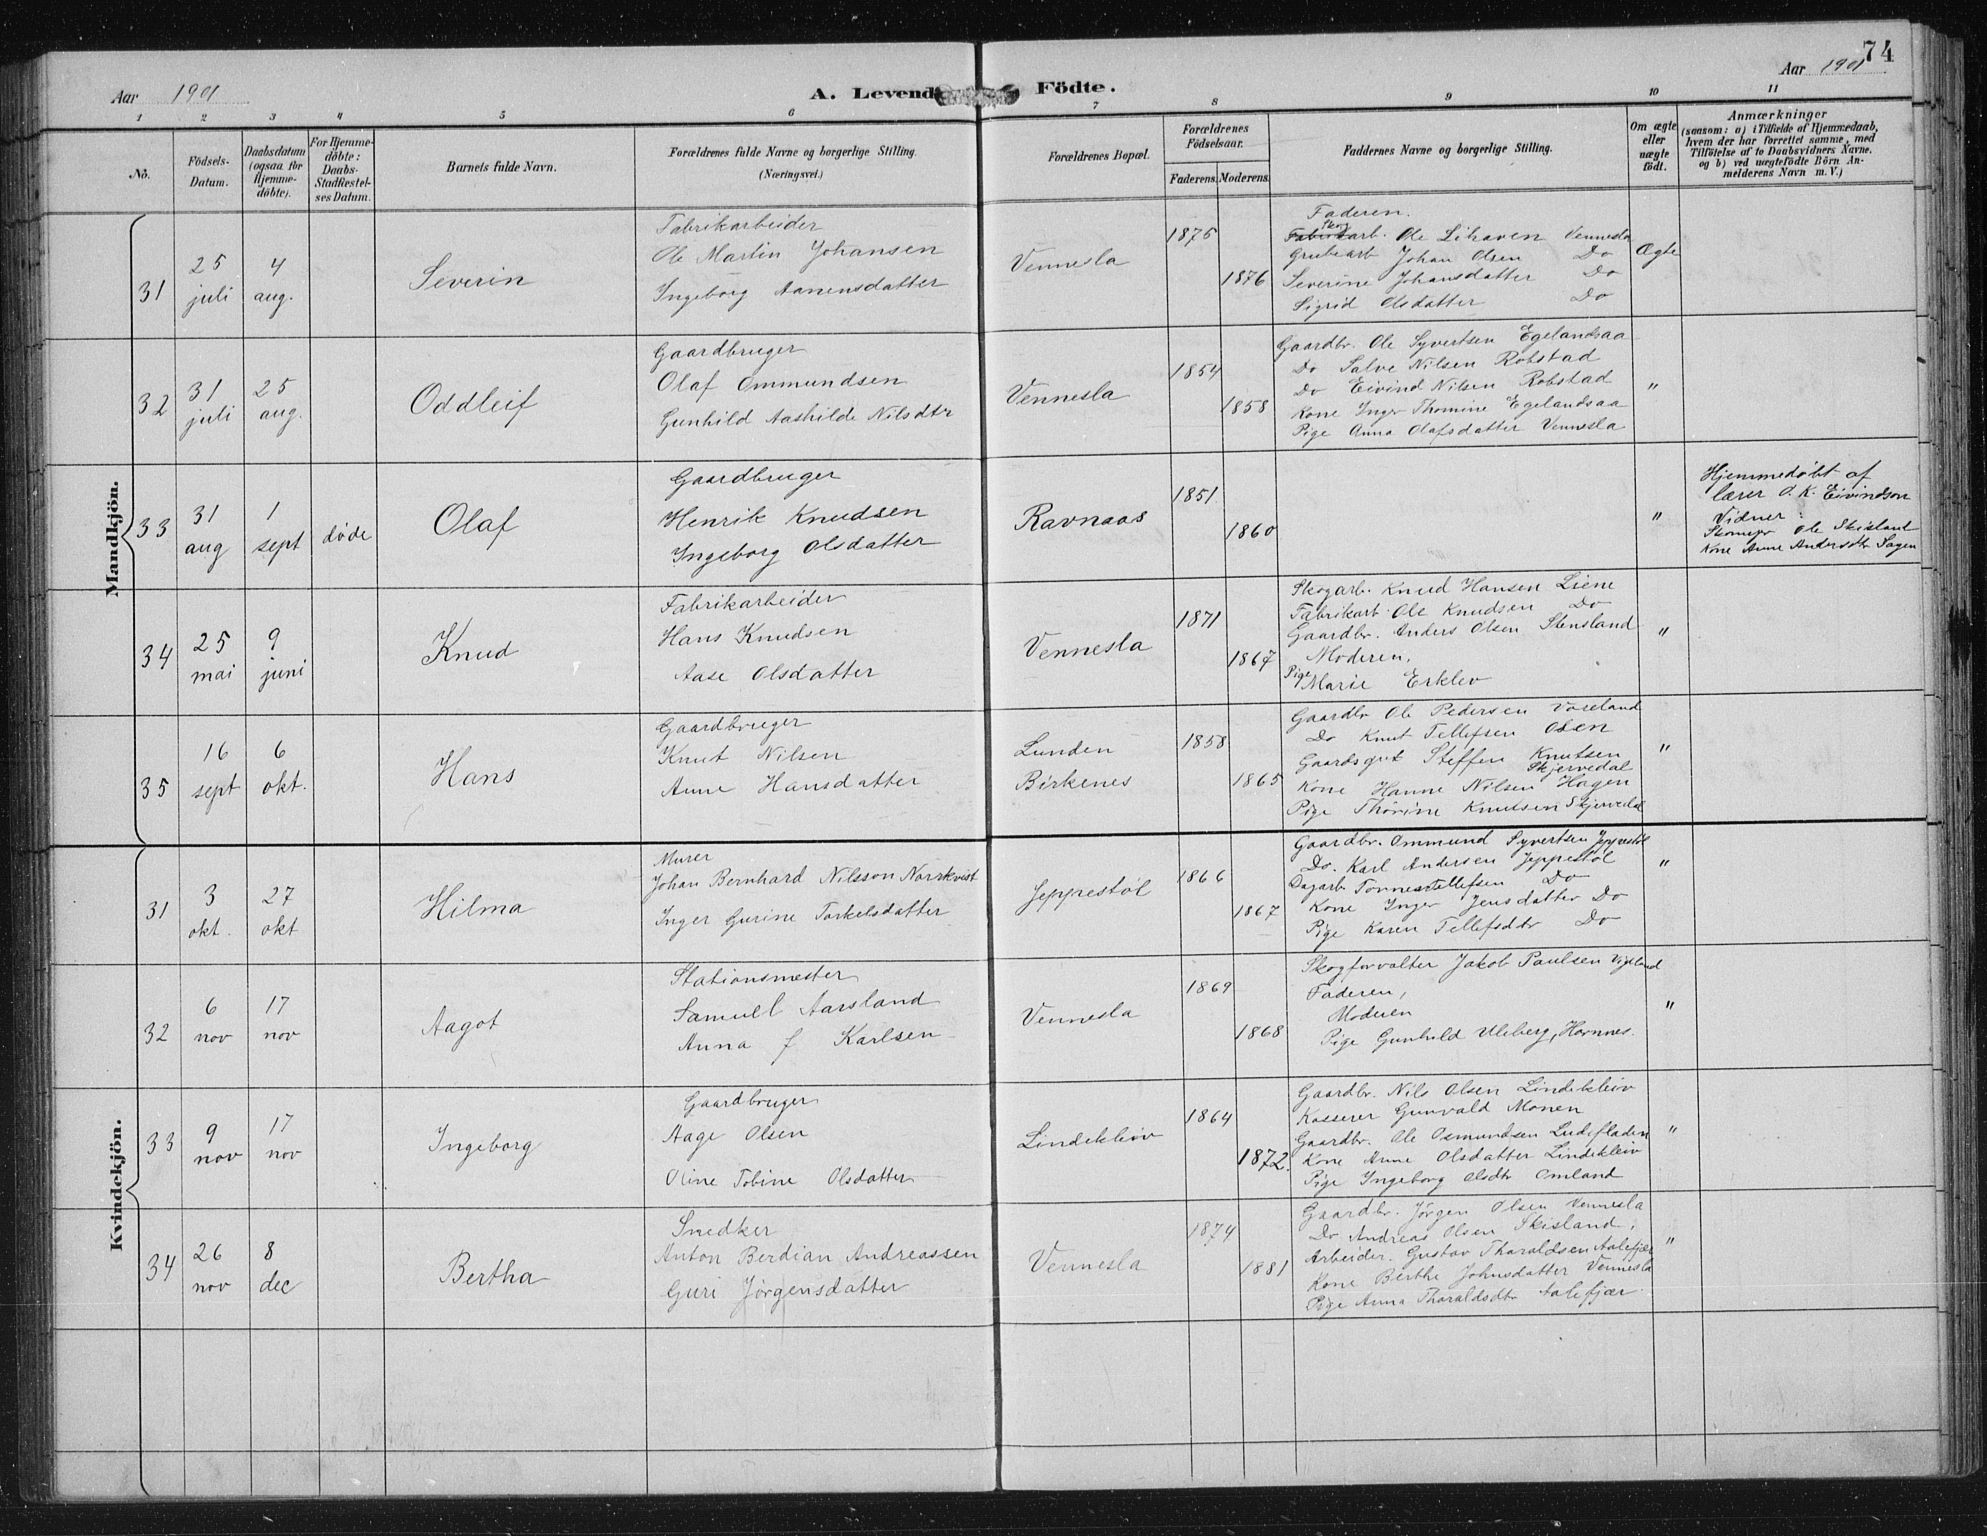 74
Aar 1901
A. Levende Födte.
Aar 1901
1 2 3 4 5 6 7 8 9 10 11
No.
Födsels-Datum.
Daabsdatum (ogsaa for Hjemmedöbte).
For Hjemmedöbte: Daabs-Stadfæstelses Datum.
Barnets fulde Navn.
Forældrenes fulde Navne og borgerlige Stilling.
(Næringsvei.)
Forældrenes Bopæl.
Forældrenes Födselsaar.
Faderens. Moderens.
Faddernes Navne og borgerlige Stilling.
Om ægte eller uægte födt.
Anmærkninger
(saasom: a) i Tilfælde af Hjemmedaab, hvem der har forrettet samme, med Tilföielse af to Daabsvidners Navne, og b) ved uægtefödte Börn Anmelderens Navn m. V.)
Mandkjön.
31
25 juli
4 aug.
Severin
Fabrikarbeider
Ole Martin Johansen
Ingeborg Aanensdatter
Vennesla
1875
1876
Faderen.
Skog
Fabrikarb. Ole Lihaven Vennesla
Grubearb Johan Olsen Do
Severine Johansdatter Do
Sigrid Olsdatter Do
Ægte
32
31 juli
25 aug.
Oddleif
Gaardbruger
Olaf Ommundsen
Gunhild Aashilde Nilsdtr
Vennesla
1854
1858
Gaardbr. Ole Syvertsen Egelandsaa
Do Salve Nilsen Robstad
Do Eivind Nilsen Robstad
Kone Inger Thomine Egelandsaa
Pige Anna Olafsdatter Vennesla
"
33
31 aug
1 sept
døde
Olaf
Gaardbruger
Henrik Knudsen
Ingeborg Olsdatter
Ravnaas
1851
1860
"
Hjemmedøbt af
lærer O. K. Eivindson
Vidner:
Ole Skisland
Kone Anne Andersdtr Sagen
34
25 mai
9 juni
Knud
Fabrikarbeider
Hans Knudsen
Aase Olsdatter
Vennesla
1871
1867
Skogarb. Knud Hansen Liene
Fabrikarb. Ole Knudsen Do
Gaardbr. Anders Olsen Stensland
Moderen,
Pige Marie Erklev
"
35
16 sept
6 okt.
Hans
Gaardbruger
Knut Nilsen
Anne Hansdatter
Lunden
Birkenes
1858
1865
Gaardbr Ole Pedersen Voreland
Do Knut Tellefsen Osen
Gaardsgut Steffen Knutsen
Skjervedal
Kone Hanne Nilsen Hagen
Pige Thorine Knutsen Skjervedal
"
Kvindekjön.
31
3 okt.
27 okt
Hilma
Murer
Johan Bernhard Nilsson Norrkvist
Inger Gurine Torkelsdatter
Jeppestøl
1866
1867
Gaardbr. Ommund Syvertsen Jeppestøl
Do. Karl Andersen Jeppestøl
Dagarb Tønnes Tellefsen Do
Kone Inger Jensdatter Do
Pige Karen Tellefsdtr Do
"
32
6 nov
17 nov
Aagot
Stationsmester
Samuel Aarsland
Anna f Karlsen
Vennesla
1869
1868
Skogforvalter Jakob Paulsen Vigeland
Faderen,
Moderen
Pige Gunhild Uleberg, Hornnes.
"
33
9 nov
17 nov
Ingeborg
Gaardbruger
Aage Olsen
Oline Tobine Olsdatter
Lindekleiv
1864
1872.
Gaardbr. Nils Olsen Lindekleiv
Kasserer Gunvald Monen
Gaardbr. Ole Osmundsen Ludefladen
Kone Anne Olsdatter Lindekleiv
Pige Ingeborg Olsdtr Omland
"
34
26 nov
8 dec
Bertha
Snedker
Anton Berdian Andreassen
Guri Jørgensdatter
Vennesla
1874
1881
Gaardbr. Jørgen Olsen Vennesla
Do Andreas Olsen Skisland,
Arbeider. Gustav Tharaldsen Aalefjær
Kone Berthe Johnsdatter Vennesla
Pige Anna Tharaldsdtr Aalefjær.
"